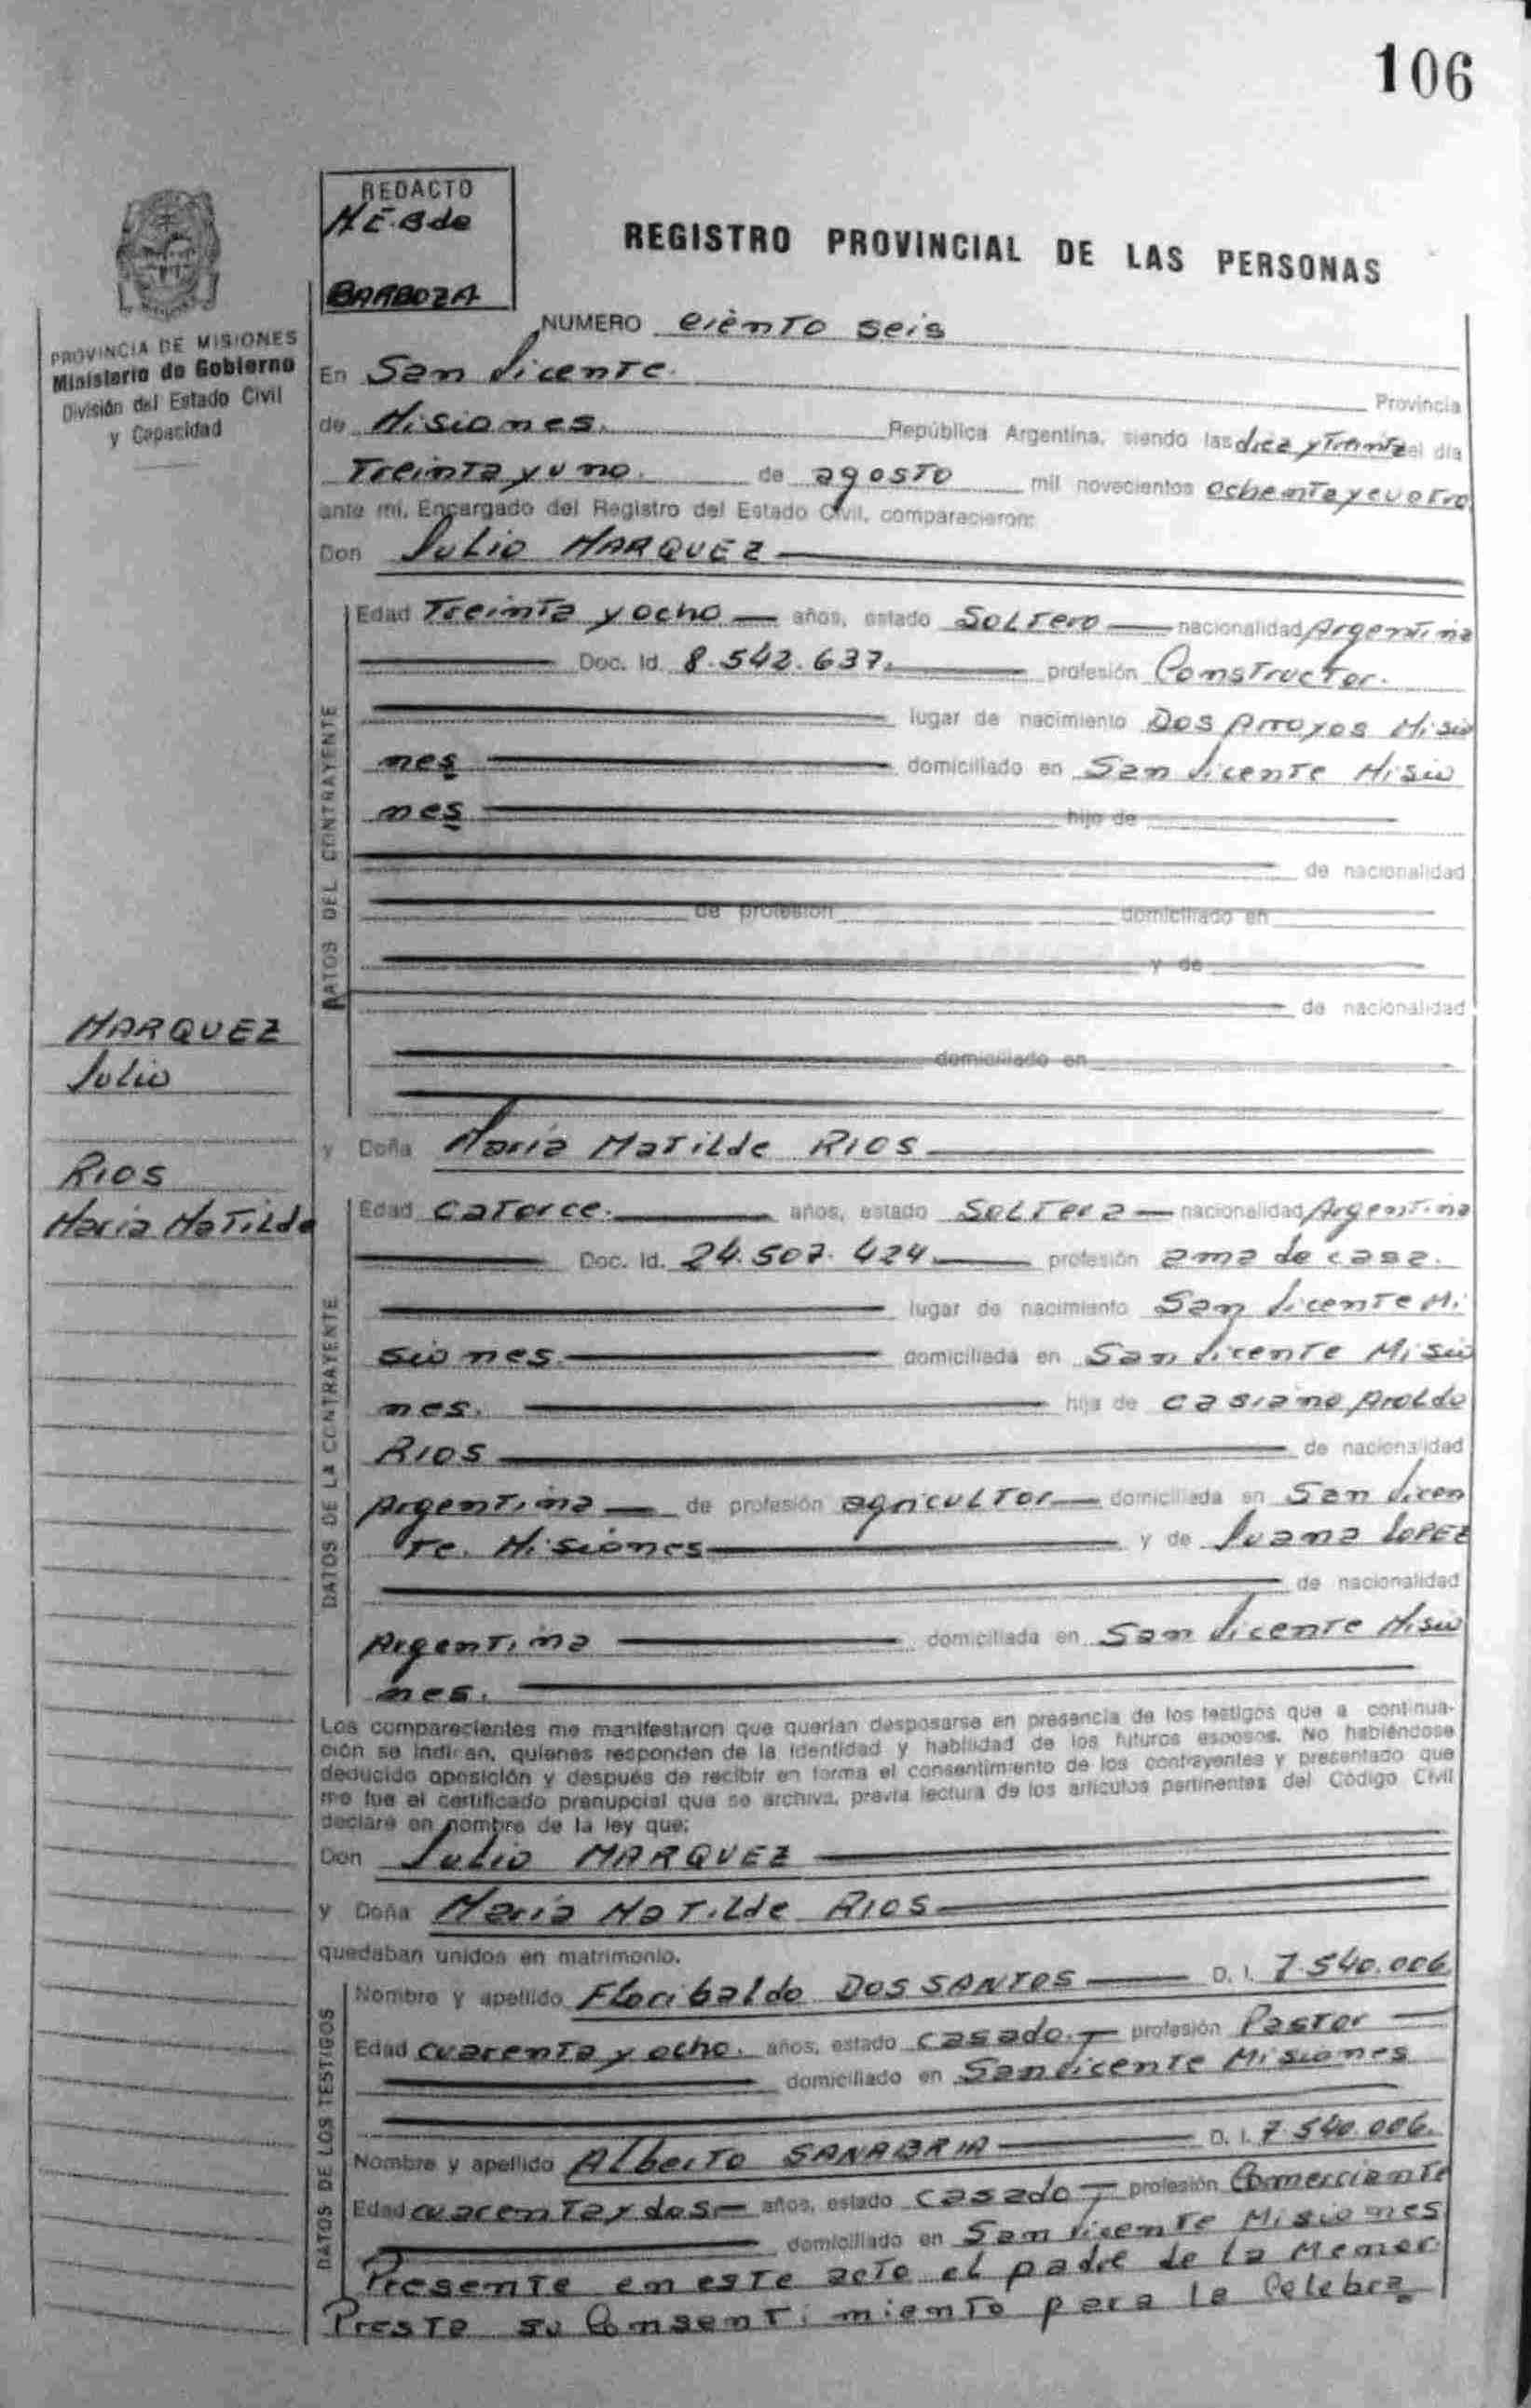 106
REDACTO
M.E.B de
BARBOZA
REGISTRO PROVINCIAL DE LAS PERSONAS
PROVINCIA DE MISIONES
Ministerio de Gobierno
División del Estado Civil
y Capacidad
NUMERO ciento seis
En San Vicente.
Provincia
de Misiones. República Argentina, siendo las diez y Treinta el día
Treinta y uno. de agosto mil novecientos ochenta y cuatro
ante mí, Encargado del Registro del Estado Civil, comparecieron:
Don Julio MARQUEZ
DATOS DEL CONTRAYENTE
Edad Treinta y ocho años, estado Soltero nacionalidad Argentina
Doc. Id. 8.542.637. profesión Constructor.
lugar de nacimiento Dos Arroyos Misio
nes domiciliado en San Vicente Misio
nes hijo de
de nacionalidad
de profesión domiciliado en
y de
de nacionalidad
domiciliado en
MARQUEZ
Julio
RIOS
María Matilde
y Doña María Matilde RIOS
DATOS DE LA CONTRAYENTE
Edad Catorce. años, estado Soltera nacionalidad Argentina
Doc. Id. 24.507.424 profesión ama de casa.
lugar de nacimiento San Vicente Mi
siones. domiciliada en San Vicente Misio
nes. hija de Casiano Aroldo
RIOS de nacionalidad
Argentina de profesión agricultor domiciliada en San Vicen
te. Misiones y de Juana LOPEZ
de nacionalidad
Argentina domiciliada en San Vicente Misio
nes.
Los comparecientes me manifestaron que querían desposarse en presencia de los testigos que a continua-
ción se indican, quienes responden de la identidad y habilidad de los futuros esposos. No habiéndose
deducido oposición y después de recibir en forma el consentimiento de los contrayentes y presentado que
me fue el certificado prenupcial que se archiva, previa lectura de los artículos pertinentes del Código Civil
declaré en nombre de la ley que:
Don Julio MARQUEZ
y Doña María Matilde RIOS
quedaban unidos en matrimonio.
DATOS DE LOS TESTIGOS
Nombre y apellido Floribaldo DOS SANTOS D. I. 7.540.006
Edad cuarenta y ocho. años, estado casado. profesión Pastor
domiciliado en San Vicente Misiones
Nombre y apellido Alberto SANABRIA D. I. 7.540.006.
Edad cuarenta y dos años, estado casado profesión Comerciante
domiciliado en San Vicente Misiones
Presente en este acto el padre de la Menor
Presta su Consentimiento para la Celebra